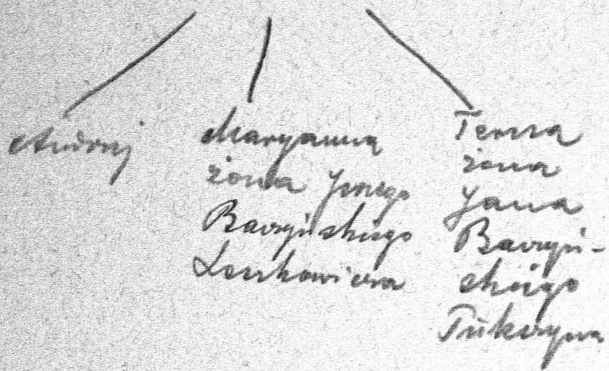 Andrzej
Maryanna
żona Jerzego
Baczyńskiego
Leszkowicza
Teresa
żona
Jana
Baczyń-
skiego